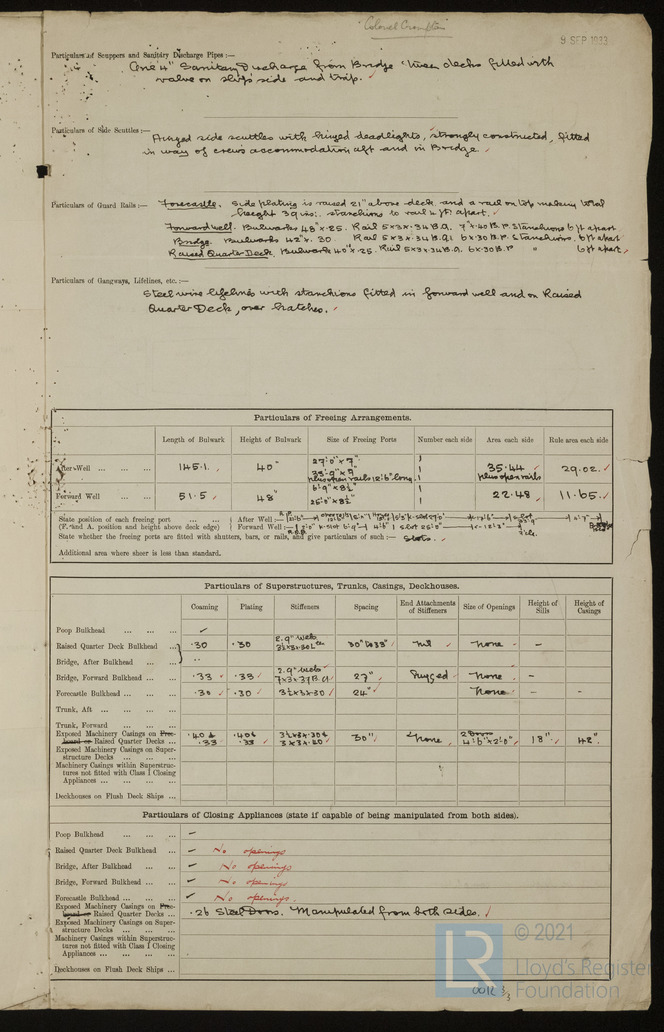 Colonel Crompton
9 SEP 1933
Particulars of Scuppers and Sanitary Discharge Pipes:—
One 4" Sanitary Discharge from Bridge 'tween decks fitted with
valve on ship's side and trap.
Particulars of Side Scuttles:—
Hinged side scuttles with hinged deadlights, strongly constructed, fitted
in way of crew's accommodation aft and in Bridge.
Particulars of Guard Rails:— Forecastle. Side plating is raised 21" above deck and a rail on top making total
height 39 ins: stanchions to rail 4 ft. apart.
Forward well. Bulwarks 48" x .25. Rail 5x3x.34 B.A. 7"x.40 B.P. Stanchions 6 ft apart
Bridge. Bulwarks 42" x .30. Rail 5x3x.34 B.A. 6x.30 B.P. Stanchions. 6 ft apart
Raised Quarter Deck. Bulwark 40" x .25. Rail 5x3x.34 B.A. 6x.30 B.P. " 6 ft apart
Particulars of Gangways, Lifelines, etc.:—
Steel wire lifelines with stanchions fitted in forward well and on Raised
Quarter Deck, over hatches.
Particulars of Freeing Arrangements.
Length of Bulwark Height of Bulwark Size of Freeing Ports Number each side Area each side Rule area each side
27'.0" x 7"
After Well ... ... ... 145.1. 40" 33'.9" x 7" 1 35.44 29.02.
plus open rails 12'.6" long. plus open rails
Forward Well ... ... 51.5 48" 6'.9" x 8½" 1 22.48 11.65
25'.0" x 8½" 1
State position of each freeing port ... ... After Well:—
(F. and A. position and height above deck edge) Forward Well:—
State whether the freeing ports are fitted with shutters, bars, or rails, and give particulars of such:— Slots.
Additional area where sheer is less than standard.
Particulars of Superstructures, Trunks, Casings, Deckhouses.
Coaming Plating Stiffeners Spacing End Attachments of Stiffeners Size of Openings Height of Sills Height of Casings
Poop Bulkhead ... ... ...
Raised Quarter Deck Bulkhead ... .30 .30 2.9" Webs 30" to 33" Nil None -
Bridge, After Bulkhead ... ... ..
Bridge, Forward Bulkhead ... ... .33 .33 2.9" Webs 7x3x.37 B.A. 27" Lugged None -
Forecastle Bulkhead ... ... ... .30 .30 3½x3x.30 24" None - -
Trunk, Aft ... ... ...
Trunk, Forward ... ... ...
Exposed Machinery Casings on Free-
board or Raised Quarter Decks ... .40& .33 .40& .33 3½x3x.30& 3x3x.30 30" None 2 Doors 4'.6" x 2'.0" 18". 48".
Exposed Machinery Casings on Super-
structure Decks ... ... ...
Machinery Casings within Superstruc-
tures not fitted with Class I Closing
Appliances ... ... ... ...
Deckhouses on Flush Deck Ships ...
Particulars of Closing Appliances (state if capable of being manipulated from both sides).
Poop Bulkhead ... ... ...
Raised Quarter Deck Bulkhead ... No openings
Bridge, After Bulkhead ... ... No openings
Bridge, Forward Bulkhead ... ... No openings
Forecastle Bulkhead ... ... ... No openings.
Exposed Machinery Casings on Free-
board or Raised Quarter Decks ... .26 Steel Doors. Manipulated from both sides.
Exposed Machinery Casings on Super-
structure Decks ... ... ...
Machinery Casings within Superstruc-
tures not fitted with Class I Closing
Appliances ... ... ... ...
Deckhouses on Flush Deck Ships ...
LR
© 2021
Lloyd's Register
Foundation